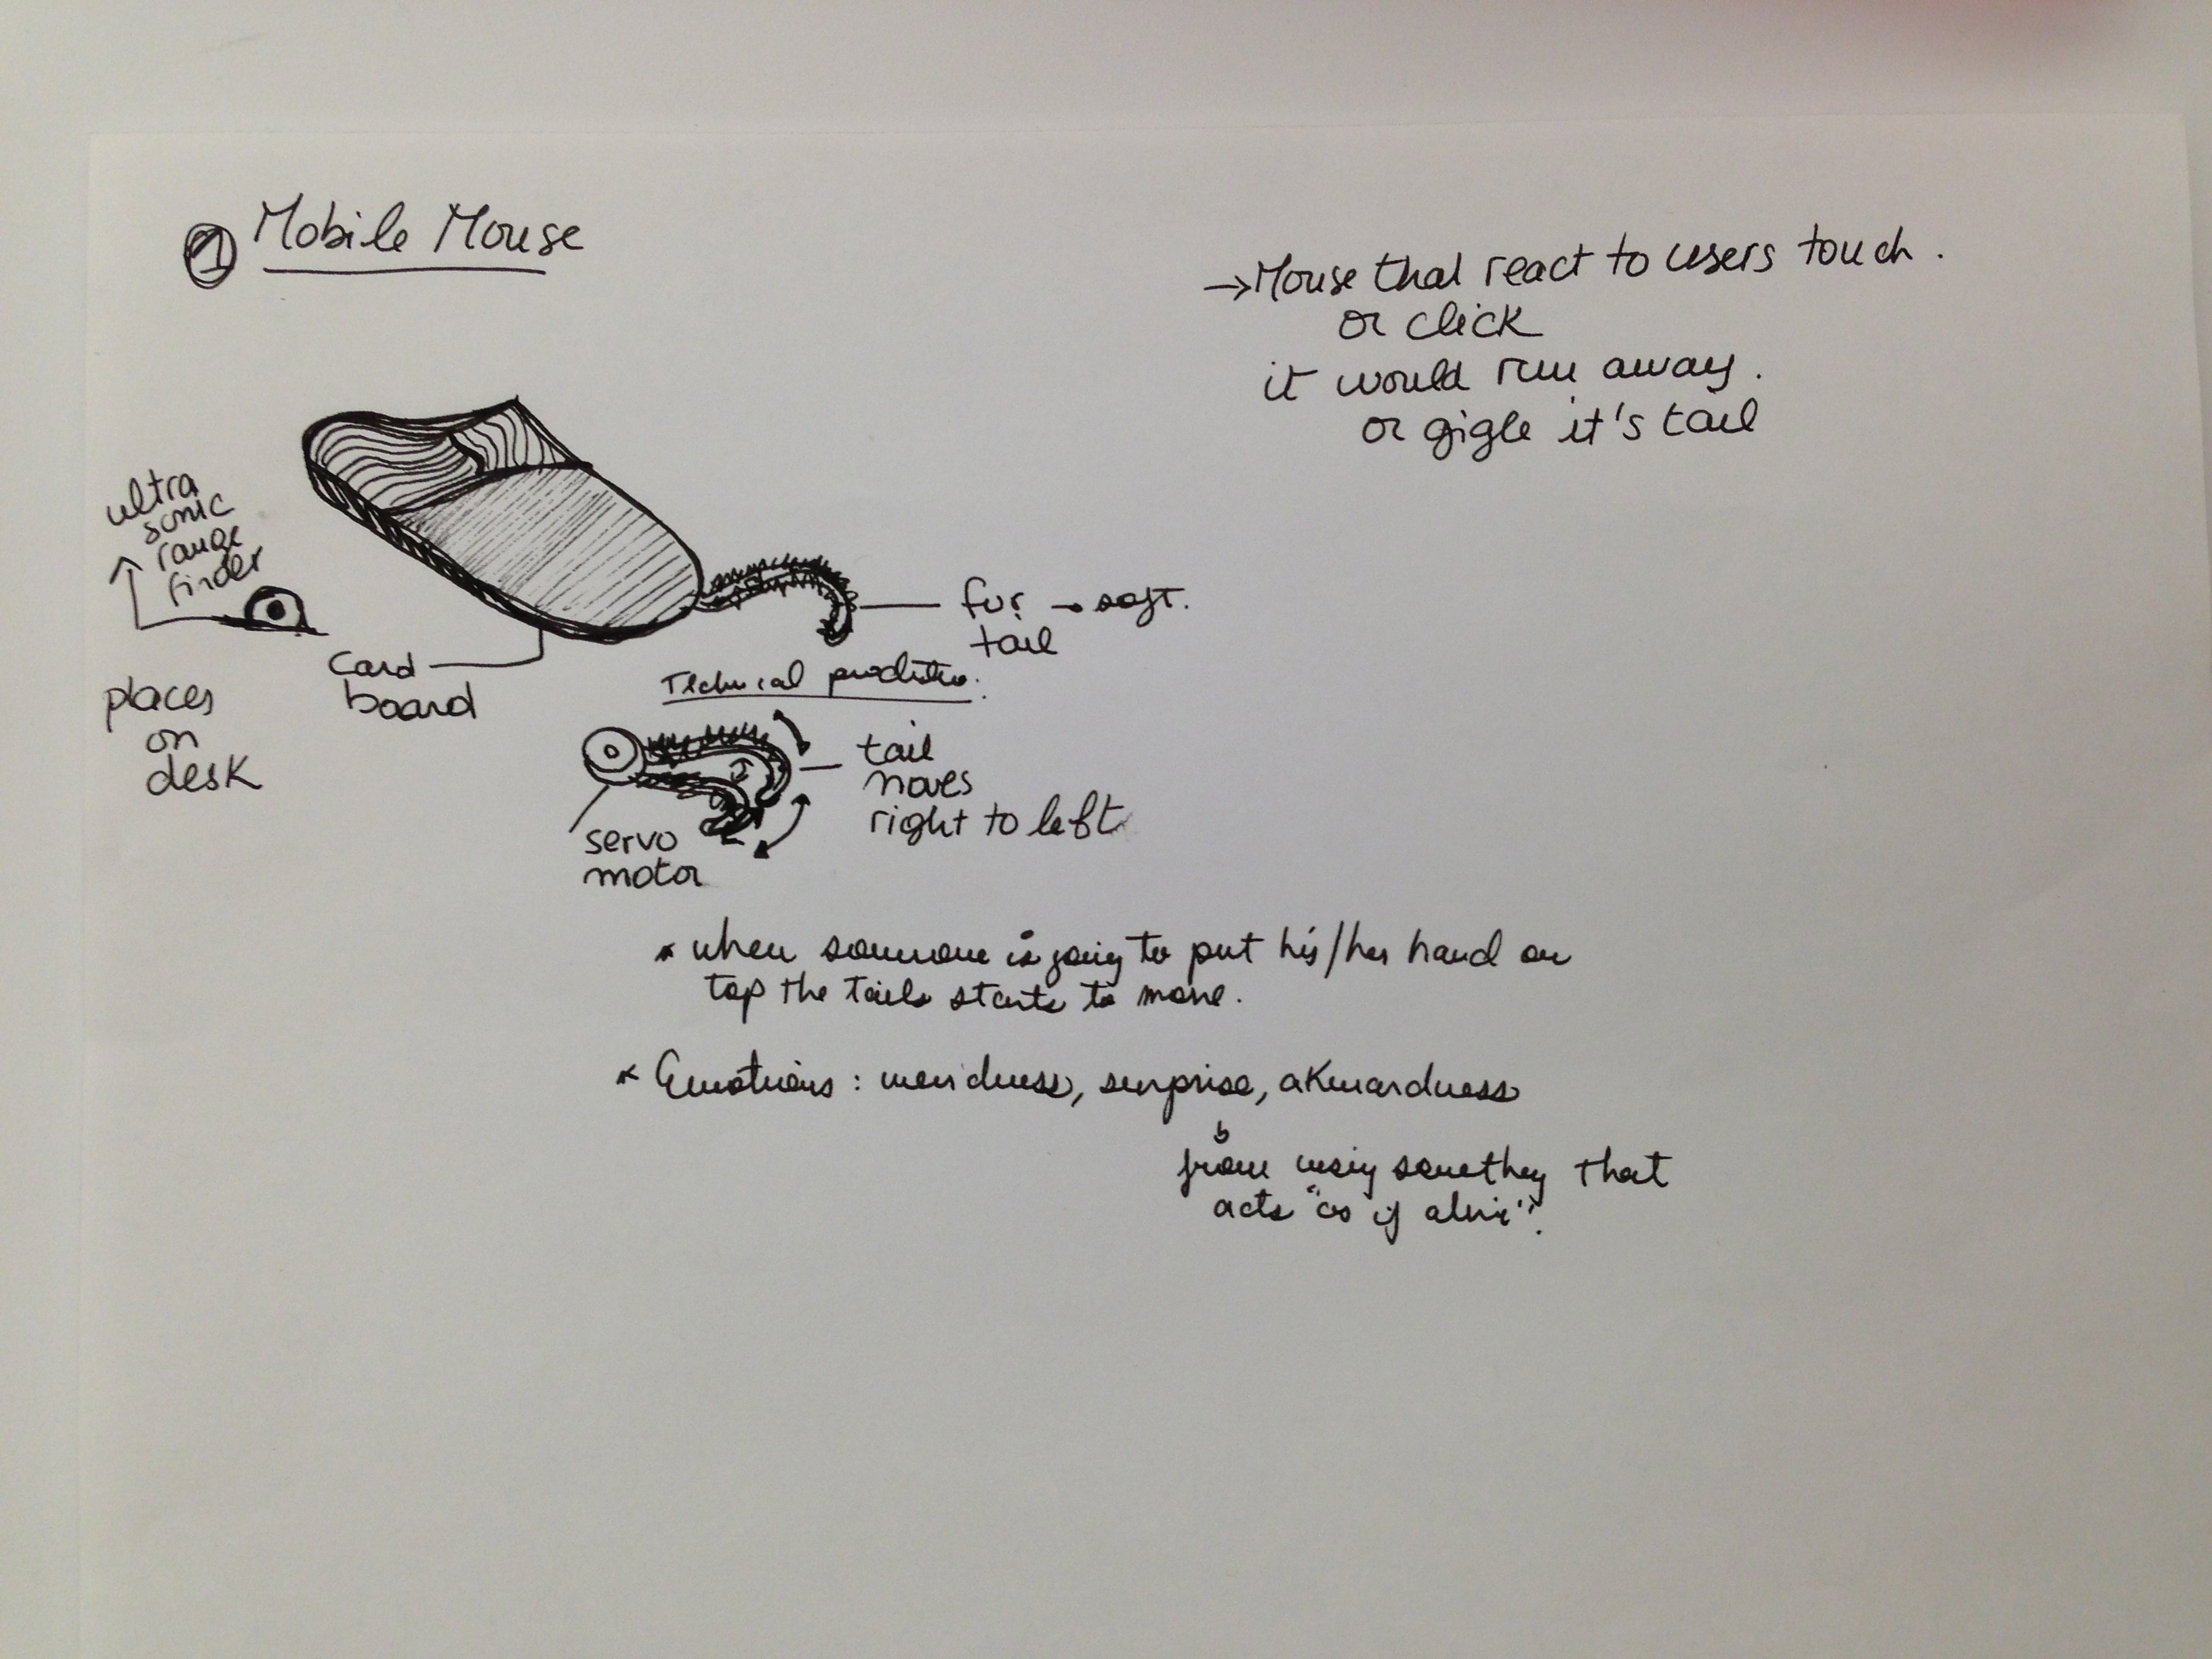 1 Mobile Mouse
→ Mouse that react to users touch.
or click
it would run away.
or gigle it's tail
ultra
sonic
range
finder
places
on
desk
Card
board
fur → soft.
tail
Technical
tail
moves
right to left
servo
motor
* when someone is going to put his/her hand on
top the tails starts to move.
* Emotions: weirdness, surprise, akwardness
from using something that
acts "as if alive".